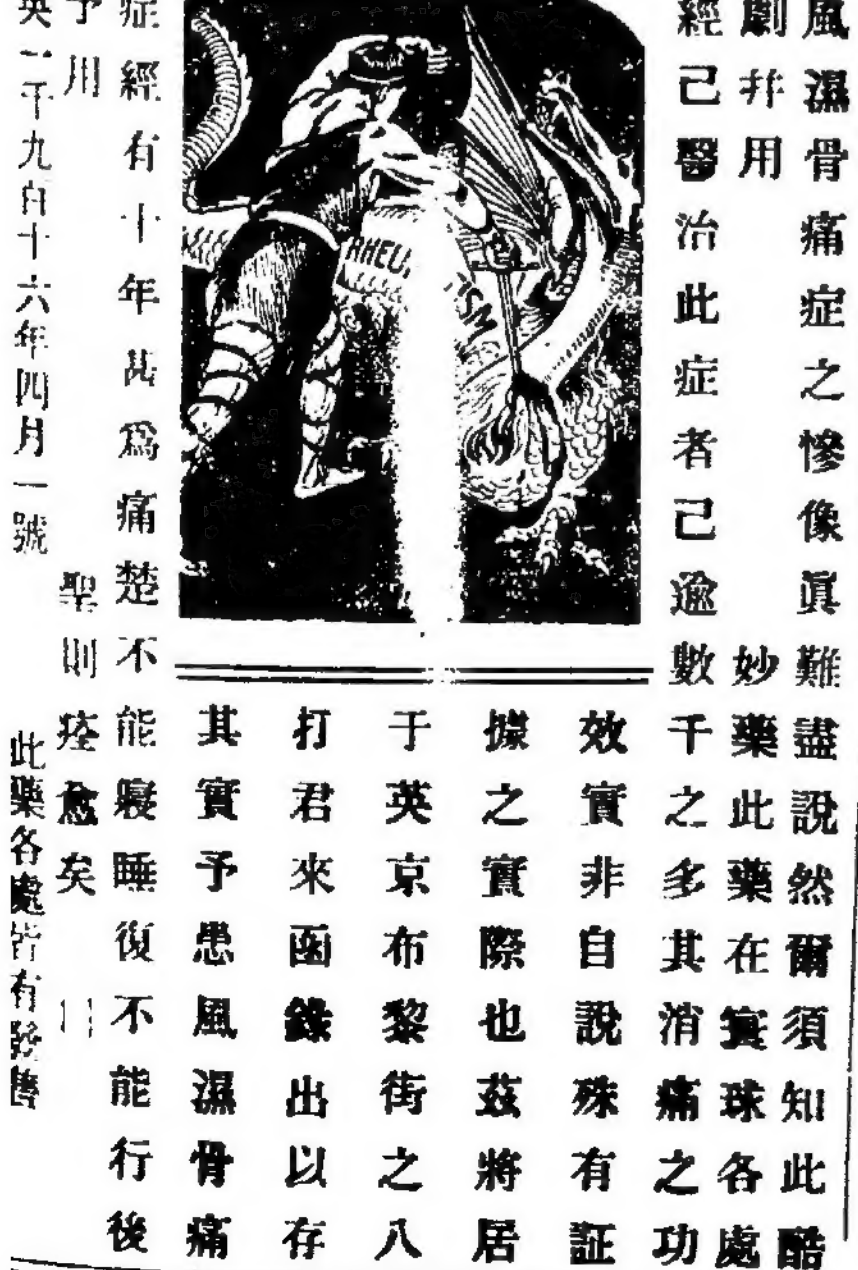 風濕骨痛症之慘像眞難盡說然爾須知此酷
劇幷用 妙藥此藥在寰球各處
經己醫治此症者己逾數千之多其消痛之功
效實非自說殊有証
據之實際也茲將居
于英京布黎街之八
打君來函錄出以存
其實予患風濕骨痛
症經有十年甚爲痛楚不能寢睡復不能行後
予用 聖則痊愈矣
英一千九百十六年四月一號 此藥各處皆有發售
RHEU ISM